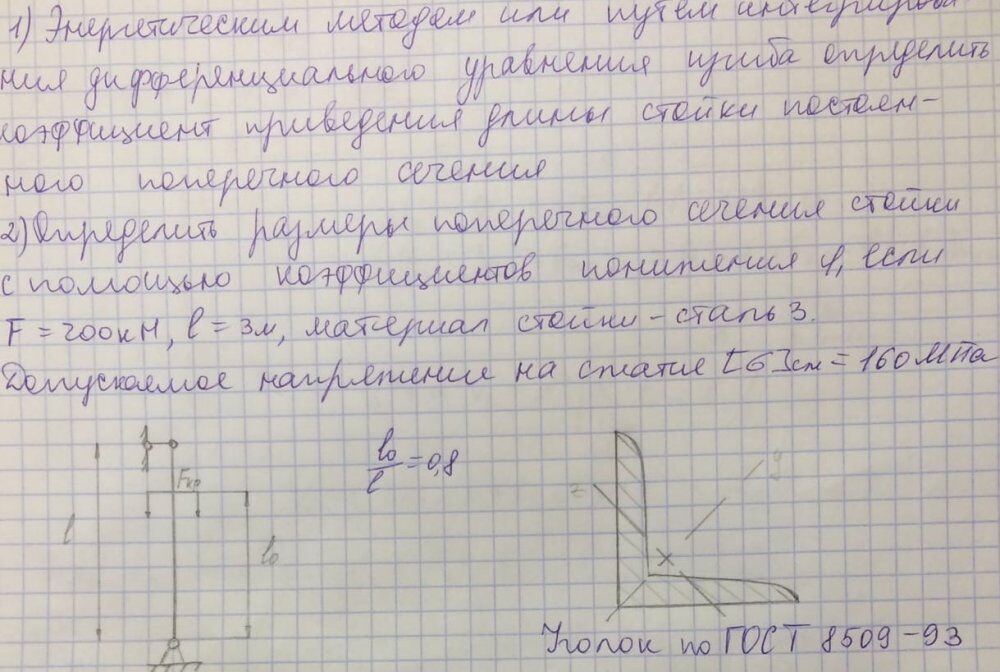 1) Энергетическим методом или путём интегрирова-
ния дифференциального уравнения изгиба определить
коэффициент приведения длины стойки постоян-
ного поперечного сечения
2) Определить размеры поперечного сечения стойки
с помощью коэффициентов понижения φ, если
F = 200кН, l = 3м, материал стойки - сталь 3.
Допускаемое напряжение на сжатие [σ]сж = 160 МПа
l0/l = 0,8
Fкр
z
y
l
l0
x
Уголок по ГОСТ 8509-93